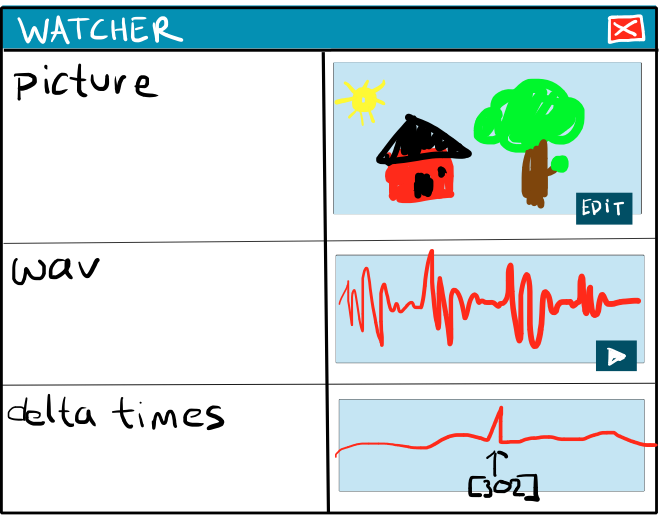 WATCHER
picture
EDIT
wav
delta times
[302]